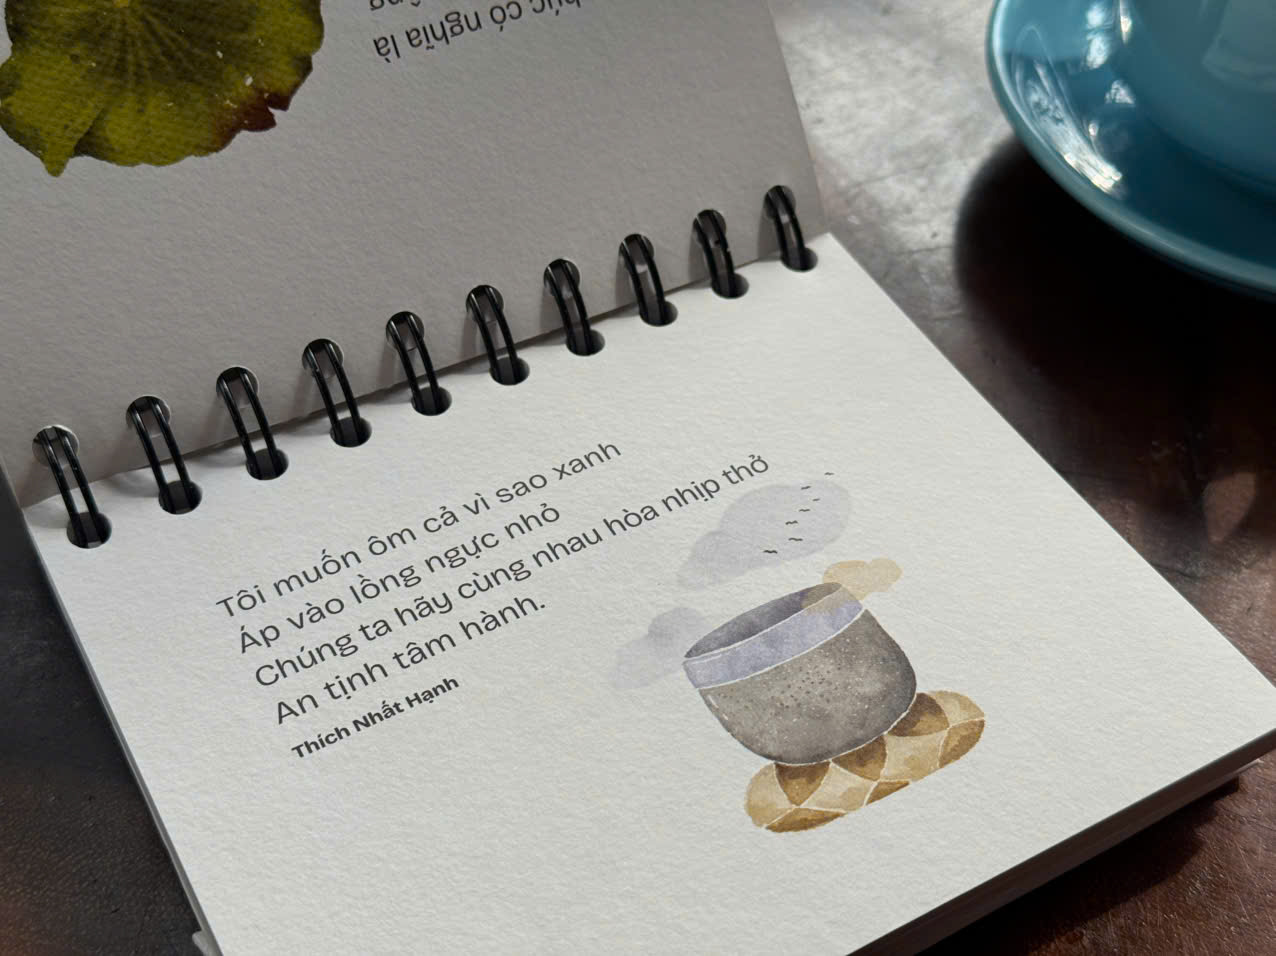 có nghĩa là
Tôi muốn ôm cả vì sao xanh
Áp vào lồng ngực nhỏ
Chúng ta hãy cùng nhau hòa nhịp thở
An tịnh tâm hành.
Thích Nhất Hạnh